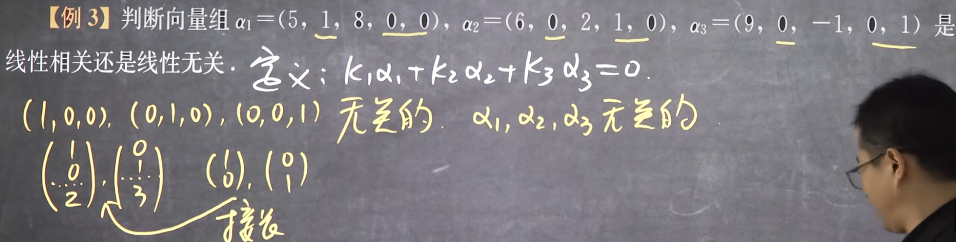 【例3】判断向量组 α₁=(5, 1, 8, 0, 0), α₂=(6, 0, 2, 1, 0), α₃=(9, 0, -1, 0, 1) 是
线性相关还是线性无关. 定义: k₁α₁+k₂α₂+k₃α₃=0.
(1,0,0), (0,1,0), (0,0,1) 无关的. α₁,α₂,α₃无关的.
(1 0 2), (0 1 3) (1 0), (0 1)
接长